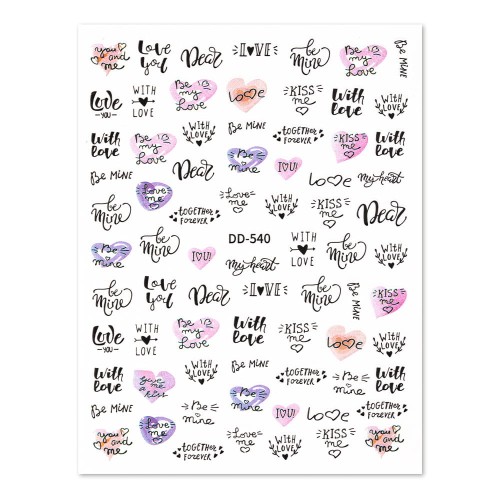 you and me
Love you
Dear
LOVE
be Mine
Be my Love
Be MINE
Love YOU
WITH LOVE
Be my Love
Love
KISS me
With love
WITH LOVE
With love
Be my Love
WITH LOVE
Be MINE
together FOREVER
KISS me
With love
Be MINE
Dear
Be mine
I U!
Love
my heart
Love me
be Mine
together FOREVER
Love me
WITH LOVE
KISS me
Dear
Be mine
be Mine
I U!
DD-540
my heart
WITH LOVE
be Mine
WITH LOVE
be Mine
Love you
Dear
LOVE
be Mine
Be MINE
KISS me
Love YOU
WITH LOVE
Be my Love
With love
KISS me
Love
With love
WITH LOVE
With love
give me a kiss
WITH LOVE
Be mine
together FOREVER
WITH LOVE
Be MINE
Love me
Be mine
Be mine
I U!
Love
together FOREVER
Be MINE
you and me
Love me
together FOREVER
Love me
WITH LOVE
KISS me
you and me